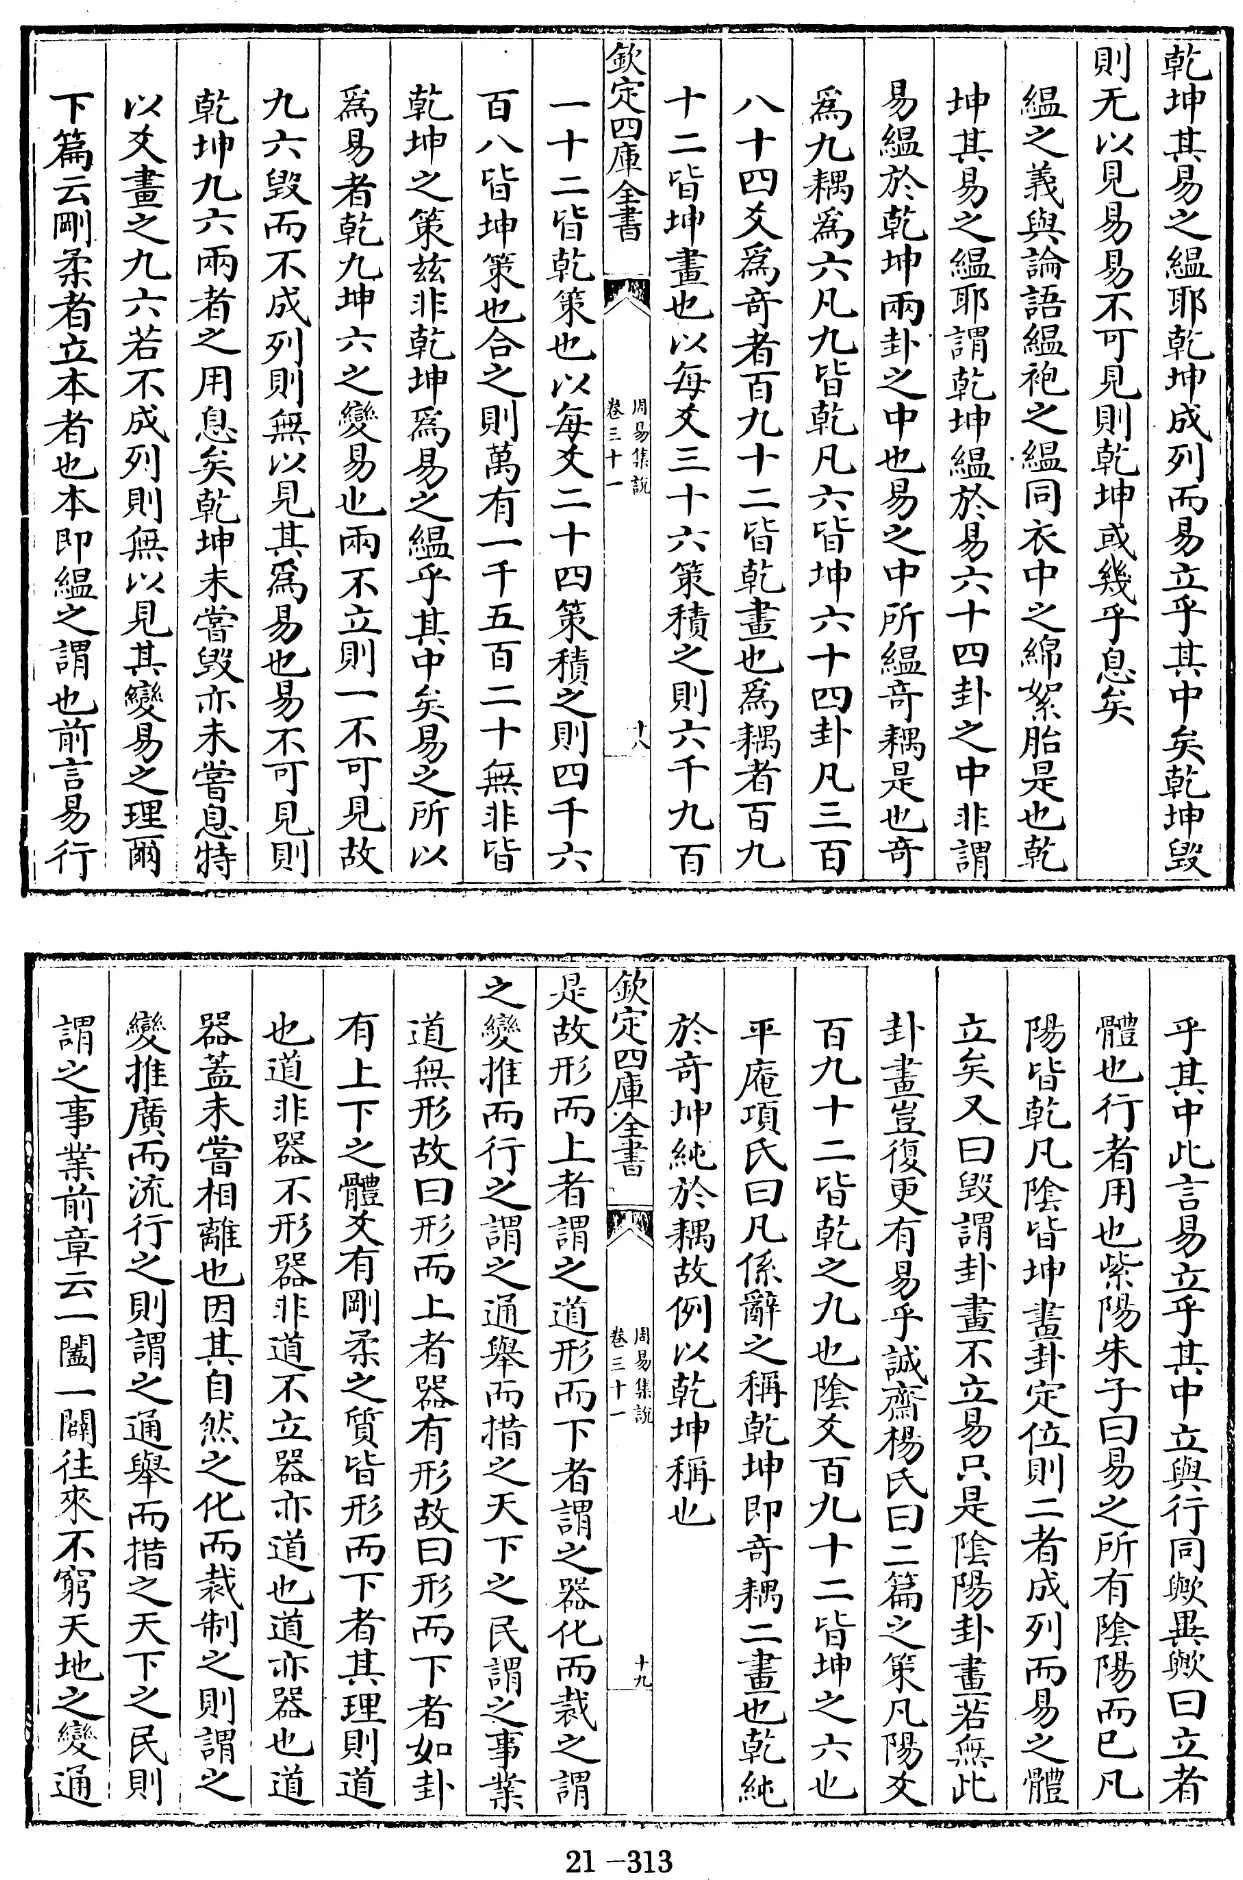 乾坤其易之緼耶乾坤成列而易立乎其中矣乾坤毁
則无以見易易不可見則乾坤或幾乎息矣
緼之義與論語緼袍之緼同衣中之綿絮胎是也乾
坤其易之緼耶謂乾坤緼於易六十四卦之中非謂
易緼於乾坤兩卦之中也易之中所緼奇耦是也奇
爲九耦爲六凡九皆乾凡六皆坤六十四卦凡三百
八十四爻爲奇者百九十二皆乾畫也爲耦者百九
十二皆坤畫也以每爻三十六策積之則六千九百
欽定四庫全書
周易集說
卷三十一
十八
一十二皆乾策也以每爻二十四策積之則四千六
百八皆坤策也合之則萬有一千五百二十無非皆
乾坤之策兹非乾坤爲易之緼乎其中矣易之所以
爲易者乾九坤六之變易也兩不立則一不可見故
九六毁而不成列則無以見其爲易也易不可見則
乾坤九六兩者之用息矣乾坤未嘗毁亦未嘗息特
以爻畫之九六若不成列則無以見其變易之理爾
下篇云剛柔者立本者也本即緼之謂也前言易行
乎其中此言易立乎其中立與行同歟異歟曰立者
體也行者用也紫陽朱子曰易之所有陰陽而已凡
陽皆乾凡陰皆坤畫卦定位則二者成列而易之體
立矣又曰毁謂卦畫不立易只是陰陽卦畫若無此
卦畫豈復更有易乎誠齋楊氏曰二篇之策凡陽爻
百九十二皆乾之九也陰爻百九十二皆坤之六也
平庵項氏曰凡係辭之稱乾坤即奇耦二畫也乾純
於奇坤純於耦故例以乾坤稱也
欽定四庫全書
周易集說
卷三十一
十九
是故形而上者謂之道形而下者謂之器化而裁之謂
之變推而行之謂之通舉而措之天下之民謂之事業
道無形故曰形而上者器有形故曰形而下者如卦
有上下之體爻有剛柔之質皆形而下者其理則道
也道非器不形器非道不立器亦道也道亦器也道
器蓋未嘗相離也因其自然之化而裁制之則謂之
變推廣而流行之則謂之通舉而措之天下之民則
謂之事業前章云一闔一闢往來不窮天地之變通
21-313